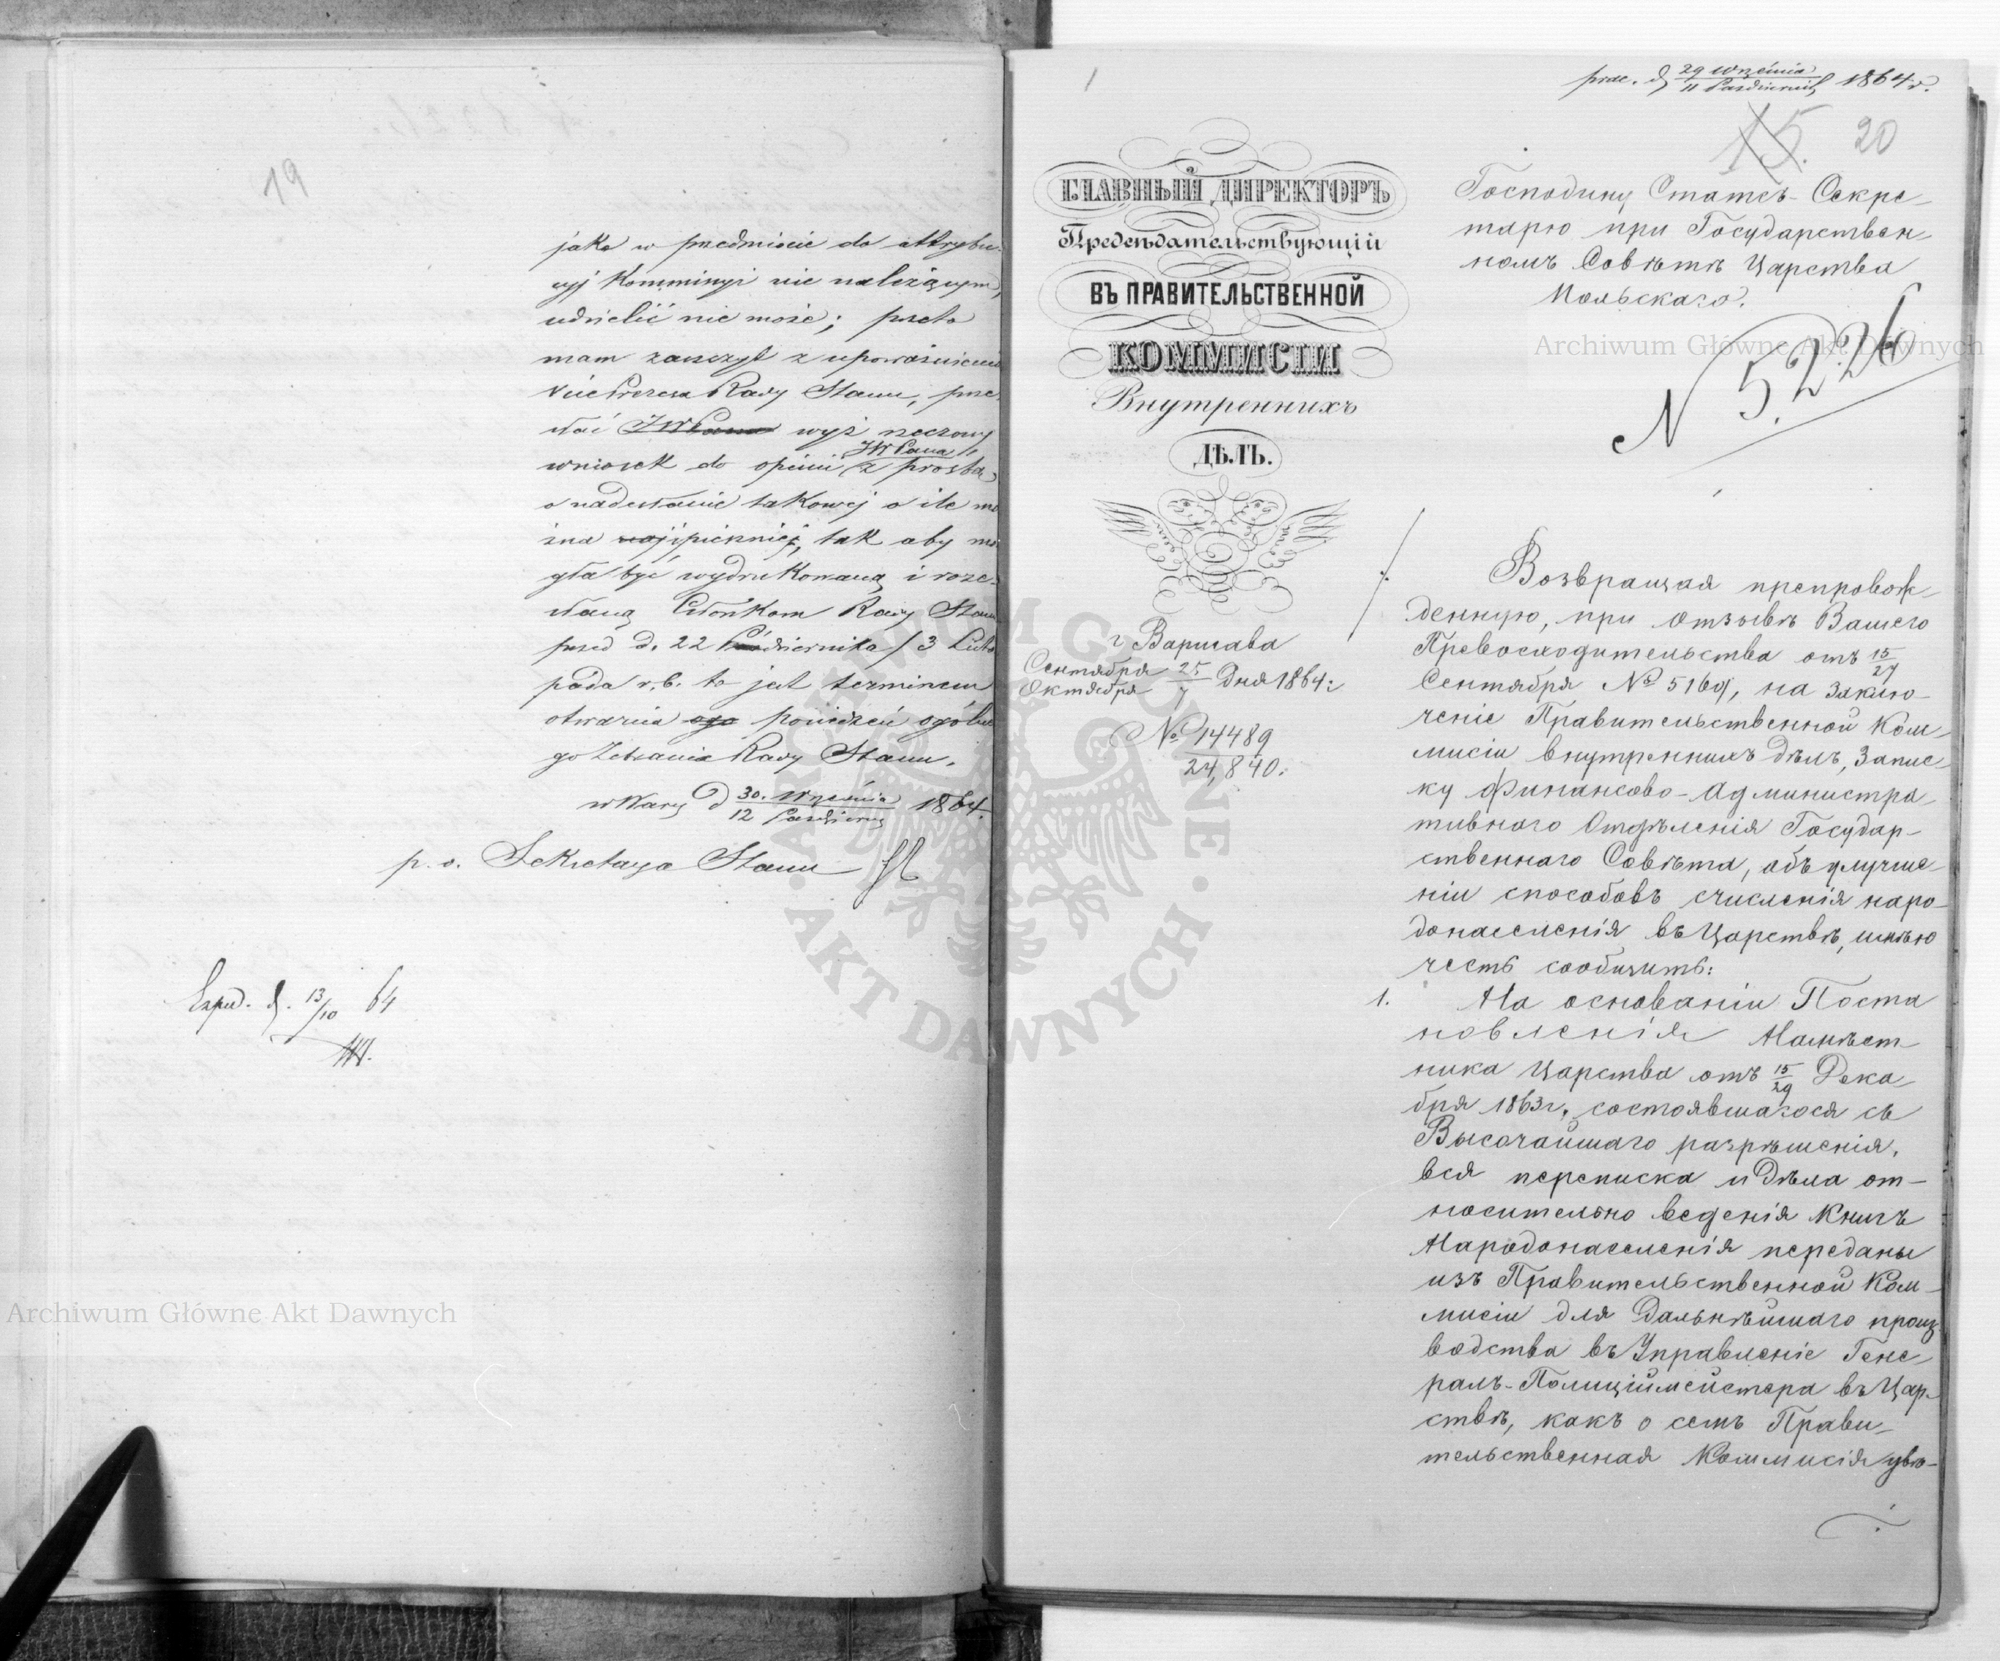 19
jako w przedmiocie do attrybu-
cyj Kommissyi nie należącym,
udzielić nie może; przeto
mam zaszczyt z upoważnienia
Vice Prezesa Rady Stanu, prze-
słać JWPanu wyż rzeczony
wniosek do opinii JWPana, z prośbą
o nadesłanie takowej o ile mo
żna najspieszniej, tak aby mo
gła być wydrukowaną i roze-
słaną Członkom Rady Stanu
przed d. 22 Października / 3 Listo
pada r. b. to jest terminem
otwarcia posiedzeń ogólne
go Zebrania Rady Stanu.
w Warsz. d 30. Września / 12 Październ 1864.
p. o. Sekretarza Stanu
Exped. d. 13/10 64
1
prze. d 29 Września / 11 Październik 1864 r.
15. 20
ГЛАВНЫЙ ДИРЕКТОРЪ
Предсѣдательствующій
ВЪ ПРАВИТЕЛЬСТВЕННОЙ
КОММИСІИ
Внутреннихъ
ДѢЛЪ.
г Варшава
Сентября 25 / Октября 7 Дня 1864 г.
№ 14489
24,840.
Господину Статсъ-Секре-
тарю при Государствен-
номъ Совѣтѣ Царства
Польскаго.
N 5.226
Возвращая препровож-
денную, при отзывѣ Вашего
Превосходительства отъ 15/27
Сентября № 5169, на заклю-
ченіе Правительственной Ком-
мисіи Внутреннихъ Дѣлъ, Запис-
ку Финансово-Администра-
тивнаго Отдѣленія Государ-
ственнаго Совѣта, объ улучше-
ніи способовъ счисленія наро-
донаселенія въ Царствѣ, имѣю
честь сообщить:
1. На основаніи Поста
новленія Намѣст
ника Царства отъ 15/29 Дека-
бря 1863 г., состоявшагося съ
Высочайшаго разрѣшенія,
вся переписка и Дѣла от-
носительно веденія Книгъ
Народонаселенія переданы
изъ Правительственной Ком-
мисіи для Дальнѣйшаго произ
водства въ Управленіе Гене-
ралъ-Полиціймейстера въ Цар-
ствѣ, какъ о семъ Прави-
тельственная Коммисія увѣ-
Archiwum Główne Akt Dawnych
Archiwum Główne Akt Dawnych
ARCHIWUM GŁÓWNE · AKT DAWNYCH ·